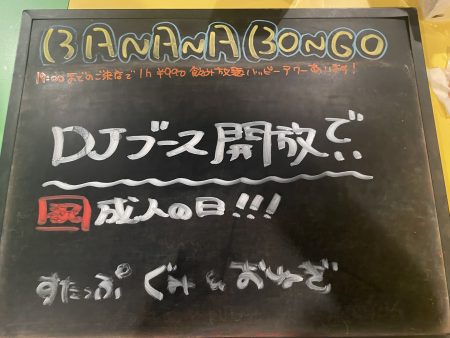 BANANA BONGO
19:00までのご来店で 1h ¥990 飲み放題ハッピーアワーあります!
DJブース開放で..
祝 成人の日!!!
すたっぷ ぐみ&